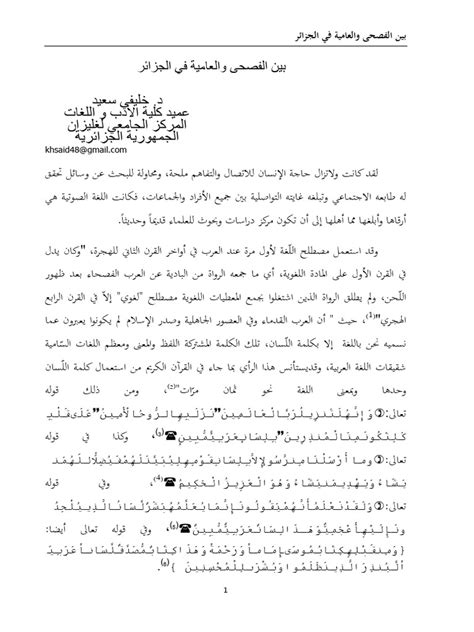 بين الفصحى والعامية في الجزائر
بين الفصحى والعامية في الجزائر
د. خليفي سعيد
عميد كلية الآدب و اللغات
المركز الجامعي لغليزان
الجمهورية الجزائرية
khsaid48@gmail.com
لقد كانت ولاتزال حاجة الإنسان للاتصال والتفاهم ملحة، ومحاولة للبحث عن وسائل تحقق
له طابعه الاجتماعي وتبلغه غايته التواصلية بين جميع الأفراد والجماعات، فكانت اللغة الصوتية هي
أرقاها وأبلغها مما أهلها إلى أن تكون مركز دراسات وبحوث للعلماء قديماً وحديثاً.
وقد استعمل مصطلح اللّغة لأول مرة عند العرب في أواخر القرن الثاني للهجرة، "وكان يدل
في القرن الأول على المادة اللغوية، أي ما جمعه الرواة من البادية عن العرب الفصحاء بعد ظهور
اللّحن، ولم يطلق الرواة الذين اشتغلوا بجمع المعطيات اللغوية مصطلح "لغوي" إلاّ في القرن الرابع
الهجري"(1)، حيث " أن العرب القدماء وفي العصور الجاهلية وصدر الإسلام لم يكونوا يعبرون عما
نسميه نحن باللغة إلا بكلمة اللّسان، تلك الكلمة المشتركة اللفظ والمعنى ومعظم اللغات السّامية
شقيقات اللغة العربية، وقديستأنس هذا الرأي بما جاء في القرآن الكريم من استعمال كلمة اللّسان
وحدها وبمعنى اللغة نحو ثمان مرّات"(2)، ومن ذلك قوله
تعالى: وَإِنَّهُ لَتَنزِيلُ رَبِّ الْعَالَمِينَ" نَزَلَ بِهِ الرُّوحُ الْأَمِينُ" عَلَى قَلْبِ
كَ لِتَكُونَ مِنَ الْمُنذِرِينَ" بِلِسَانٍ عَرَبِيٍّ مُّبِينٍ (3)، وكذا في قوله
تعالى: وما أَرْسَلْنَا مِن رَّسُولٍ إِلاَّ بِلِسَانِ قَوْمِهِ لِيُبَيِّنَ لَهُمْ فَيُضِلُّ اللَّهُ مَن
يَشَاءُ وَيَهْدِي مَن يَشَاءُ وَهُوَ الْعَزِيزُ الْحَكِيمُ (4)، وفي قوله
تعالى: وَلَقَدْ نَعْلَمُ أَنَّهُمْ يَقُولُونَ إِنَّمَا يُعَلِّمُهُ بَشَرٌ لِّسَانُ الَّذِي يُلْحِدُ
ونَ إِلَيْهِ أَعْجَمِيٌّ وَهَذَا لِسَانٌ عَرَبِيٌّ مُّبِينٌ (5)، وفي قوله تعالى أيضا:
{ وَمِن قَبْلِهِ كِتَابُ مُوسَى إِمَاماً وَرَحْمَةً وَهَذَا كِتَابٌ مُّصَدِّقٌ لِّسَاناً عَرَبِيّ
اً لِّيُنذِرَ الَّذِينَ ظَلَمُوا وَبُشْرَى لِلْمُحْسِنِينَ }(6).
1